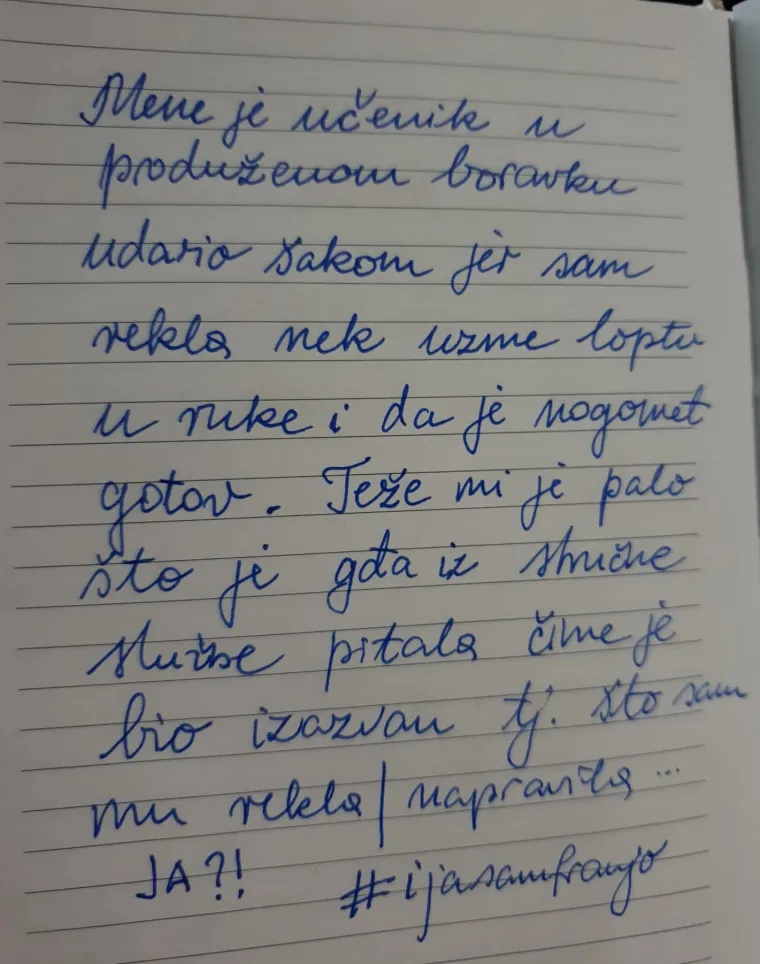 Mene je učenik u
produženom boravku
udario šakom jer sam
rekla nek uzme loptu
u ruke i da je nogomet
gotov. Teže mi je palo
što je gđa iz stručne
službe pitala čime je
bio izazvan tj. što sam
mu rekla/napravila...
JA?! #ijasamfranjo